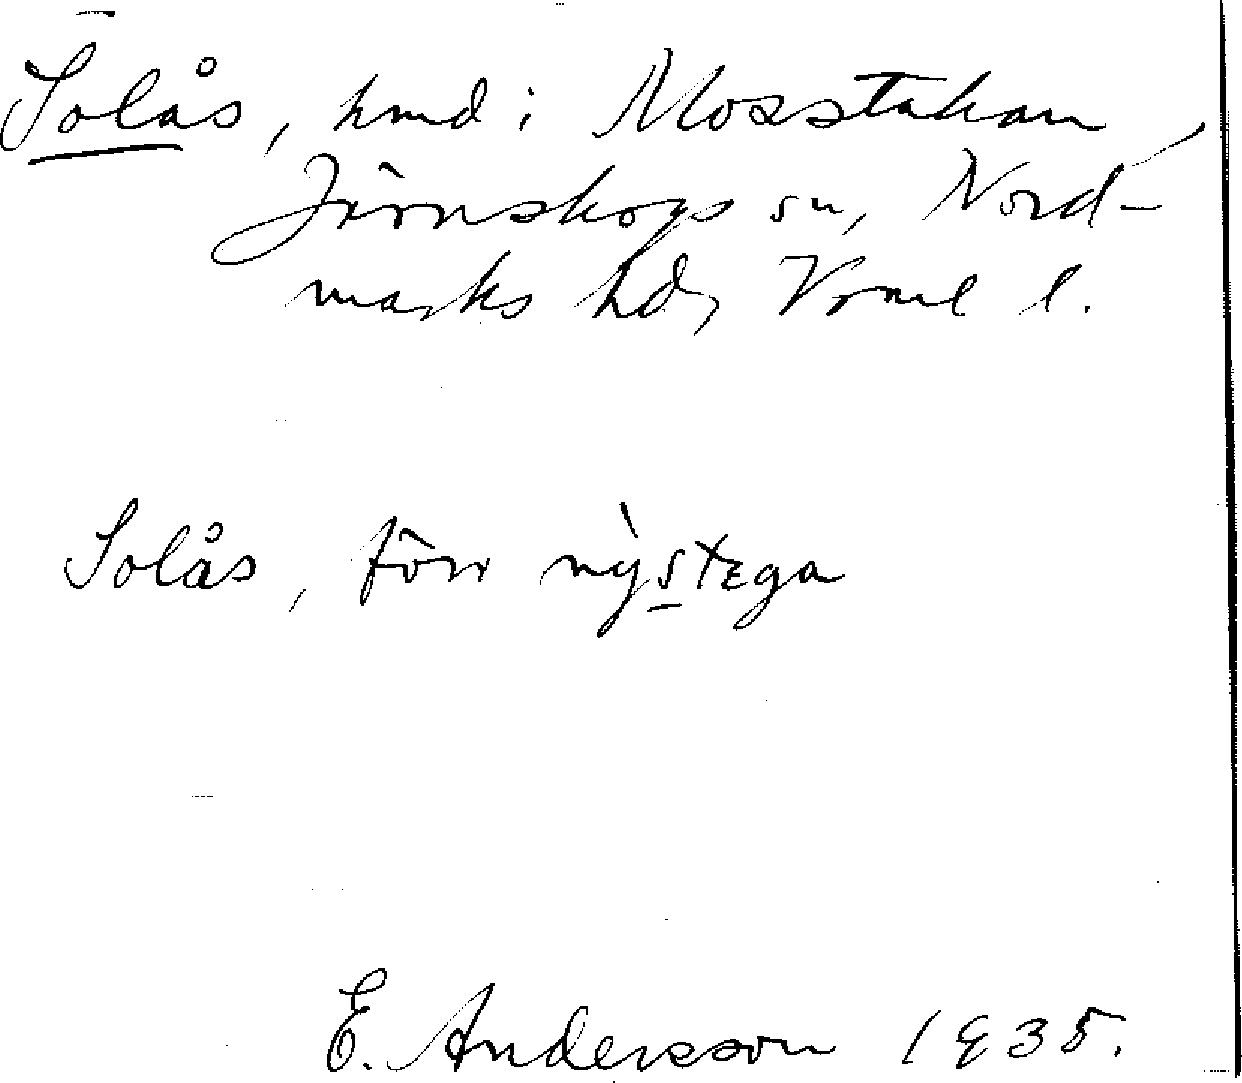 Solås, hmd i Mosstakan,
Järnskogs sn, Nord-
marks hd, Vrml l.
Solås, förr nỳstega
E. Andersson 1935.